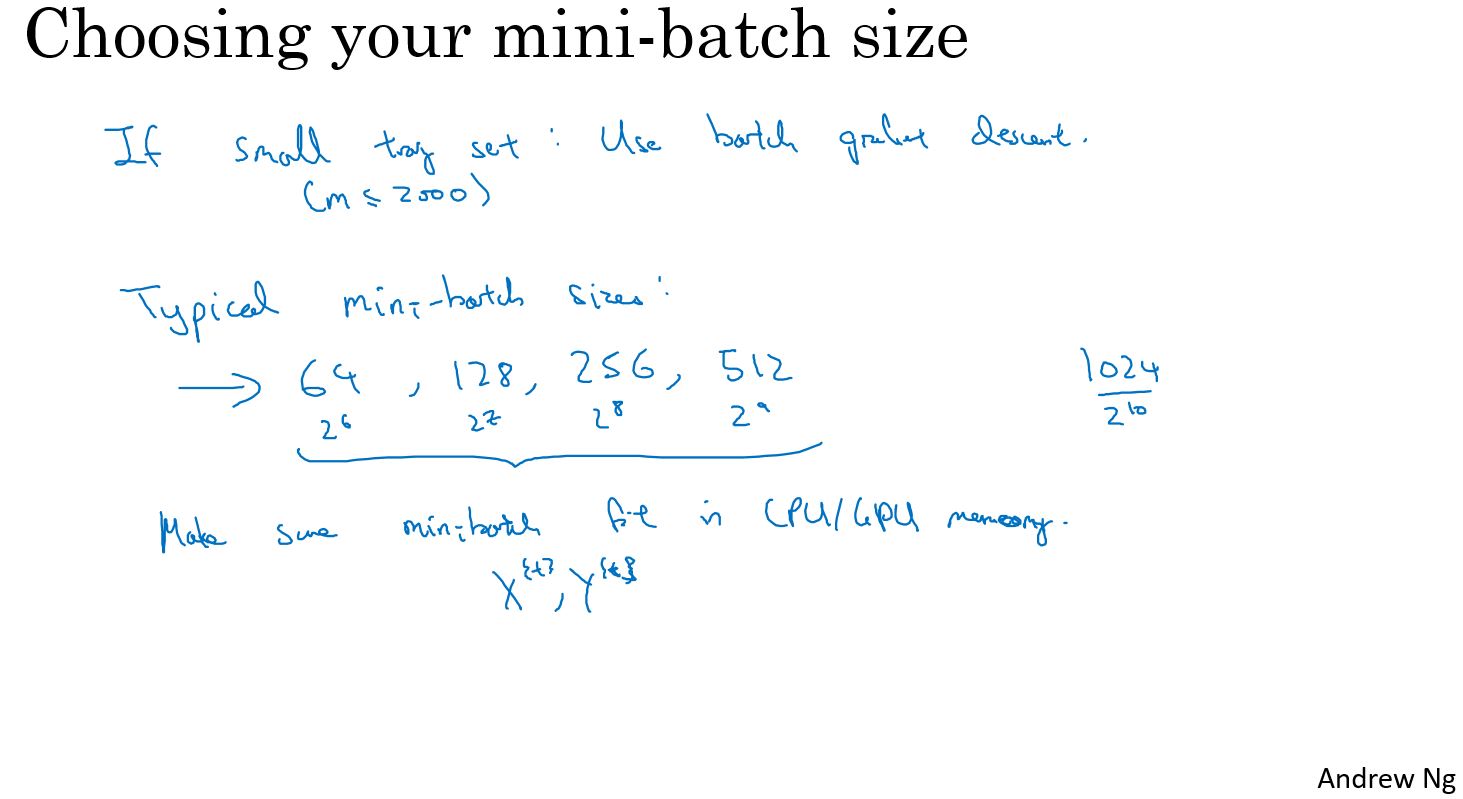 Choosing your mini-batch size
If small tray set : Use batch gradient descent.
(m ≤ 2000)
Typical mini-batch sizes:
→ 64 , 128, 256, 512 1024
2^6 2^7 2^8 2^9 2^10
Make sure mini-batch fit in CPU/GPU memory.
X^{t}, Y^{t}
Andrew Ng